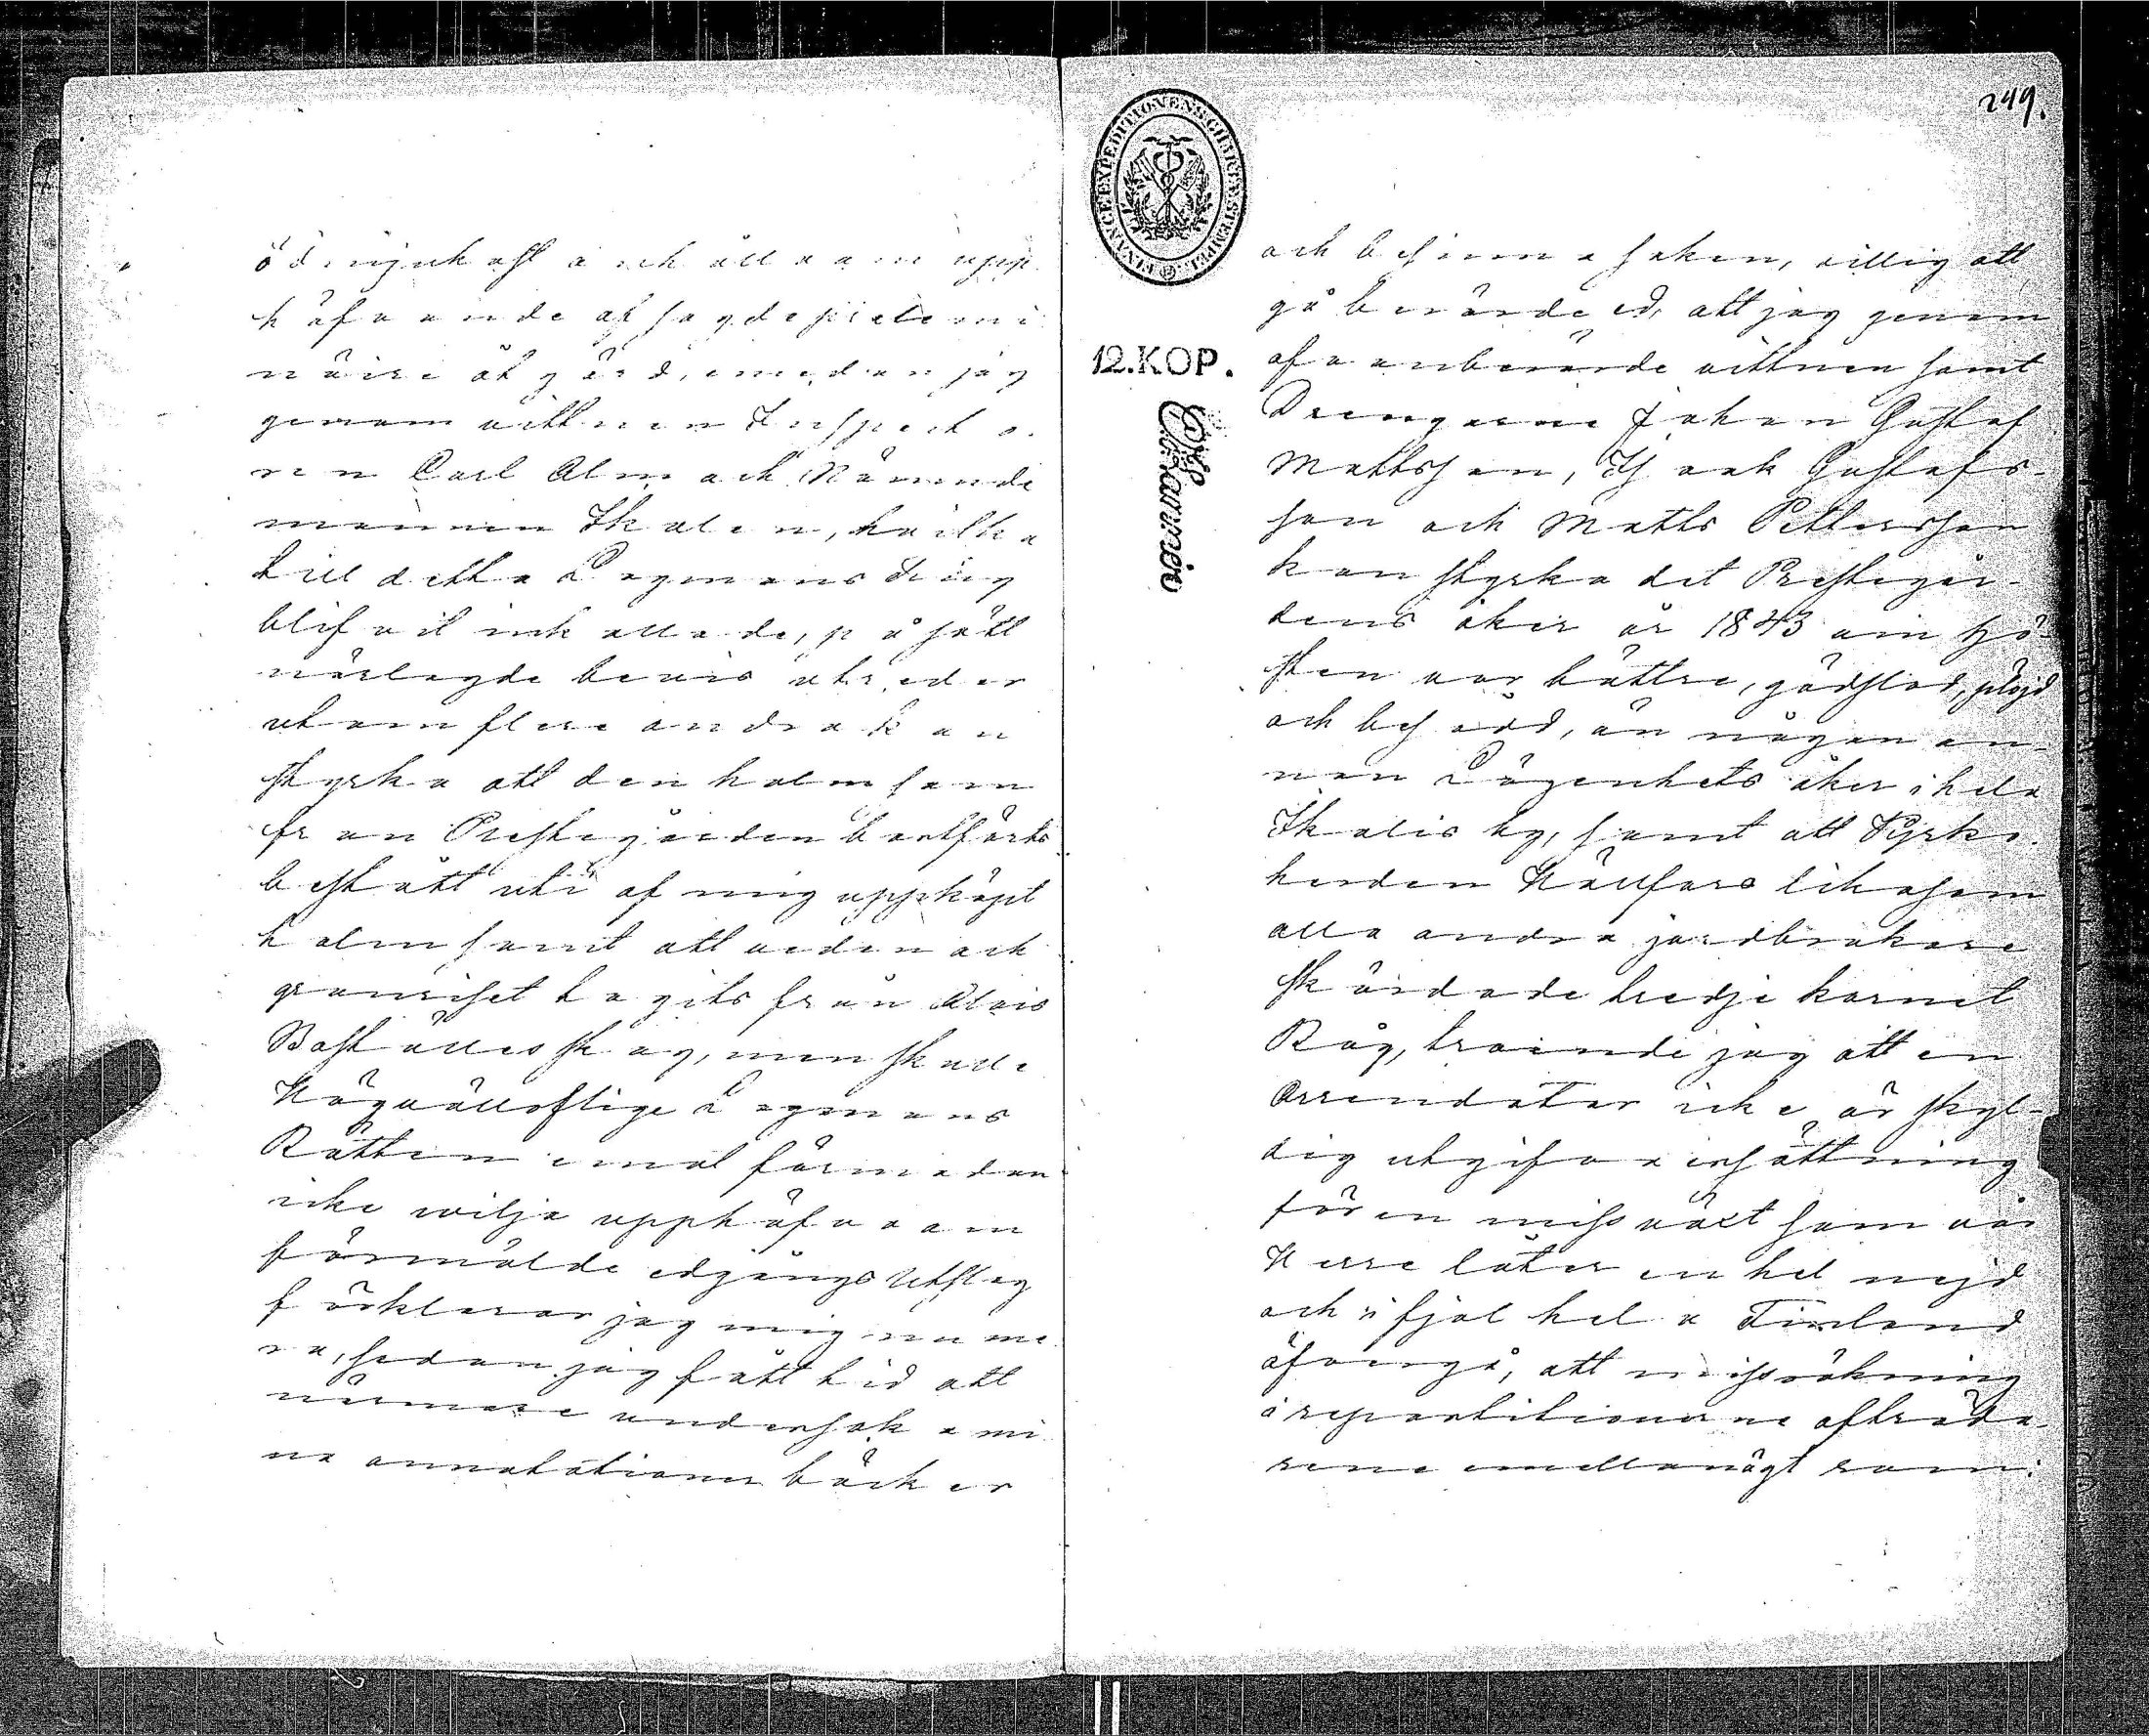 ödmjukast anhålla om upp
häfvande af sagde prelimi
näire åtgärd, emedan jag
genom vittnen Inspecto
ren Carl Alm och Nämnde
mannen Skalen, hvilka
till detta Lagmans Ting
blifvit inkallade, på sätt
närlagde bevis utreder
utom flere andra kan
styrka att den halm som
från Prestegården bortförts
bestått uti af mig uppköpt
halm samt att veden och
granriset tagits från Alois
Boställes skog, men skulle
Högvällofliga Lagmans
Rätten emot förmodan
icke wilja upphäfva om
förmälde edgångs Utslag
förklarar jag mig nu me
ra, sedan jag fått tid att
närmare undersöka mi
na annotationer böcker
249.
FINANCE EXPEDITIONENS CHARTÆ STEMPEL
12. KOP.
och besinna saken, villig att
gå berörde ed, att jag genom
ofvanberörde vittnen samt
Drengarne Johan Gustaf
Mattsson, Isaak Gustafs-
son och Matts Pettersson
kan styrka det Prestegår-
dens åker år 1843 om hö-
sten var bättre, gödslad, plöjd
och besådd, än någon an-
nan Lägenhets åker i hela
Skalis by, samt att Kyrko
herden Hällfors likasom
alla andra jordbrukare
skördade tredje kornet
Råg, troende jag att en
Arrendator icke är skyl-
dig utgifva ersättning
för en missväxt som vår
Herre låter en hel nejd
och i fjol hela Finland
öfvergå, att missräkning
i repartitionerne afträda-
rene emellan ägt rum: